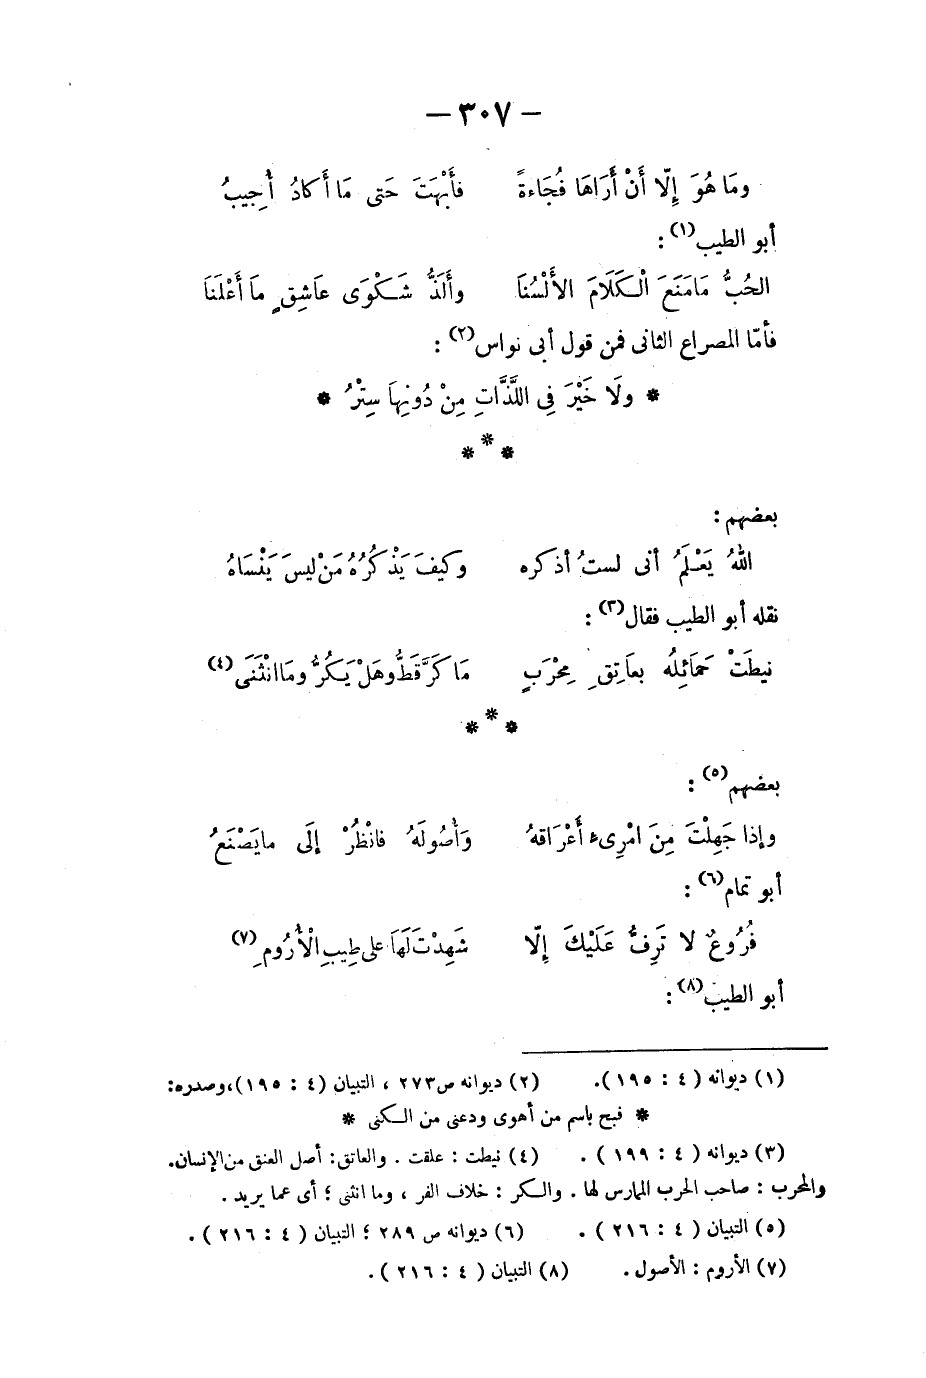 — ٣٠٧ —
ومَا هُوَ إِلّا أَنْ أَرَاهَا فُجَاءةً فأَبْهَتَ حَتى مَا أَكادُ أُجِيبُ
أبو الطيب(١) :
الحُبُّ مَامَنَعَ الْكَلَامَ الأَلْسُنَا وأَلَذُّ شَكْوَى عاَشِقٍ ماَ أَعْلَنَا
فأمّا المصراع الثانى فمن قول أبى نواس(٢) :
* ولَا خَيْرَ فِى اللَّذَّاتِ مِنْ دُونِهاَ سِتْرُ *
* * *
بعضهم :
اللهُ يَعْلَمُ أنى لستُ أذكره وكيفَ يَذْكُرُهُ مَنْ ليسَ يَنْسَاهُ
نقله أبو الطيب فقال(٣) :
نيطَتْ حَمَائِلُه بعاَتِقِ مِحْرَبٍ مَا كَرَّ قَطُّ وهَلْ يَكُرُّ ومَا انْثَنَى(٤)
* * *
بعضهم(٥) :
وإذا جَهِلْتَ مِنَ امْرِىء أَعْرَاقهُ وَأُصُولَهُ فانْظُرْ إلَى مايَصْنَعُ
أبو تمام(٦) :
فُرُوعٌ لا تَرِفُّ عَلَيْكَ إلّا شَهِدْتَ لَهاَ على طِيبِ الْأُرُومِ(٧)
أبو الطيب(٨) :
(١) ديوانه ( ٤ : ١٩٥ ). (٢) ديوانه ص ٢٧٣ ، التبيان (٤ : ١٩٥)،وصدره:
* فبح باسم من أهوى ودعنى من الكنى *
(٣) ديوانه ( ٤ : ١٩٩ ) . (٤) نيطت : علقت . والعاتق: أصل العنق من الإنسان.
والمحرب : صاحب الحرب الممارس لها . والكر : خلاف الفر ، وما انثنى ؛ أى عما يريد .
(٥) التبيان ( ٤ : ٢١٦ ) . (٦) ديوانه ص ٢٨٩ ؛ التبيان ( ٤ : ٢١٦ ) .
(٧) الأروم : الأصول . (٨) التبيان ( ٤ : ٢١٦ ) .